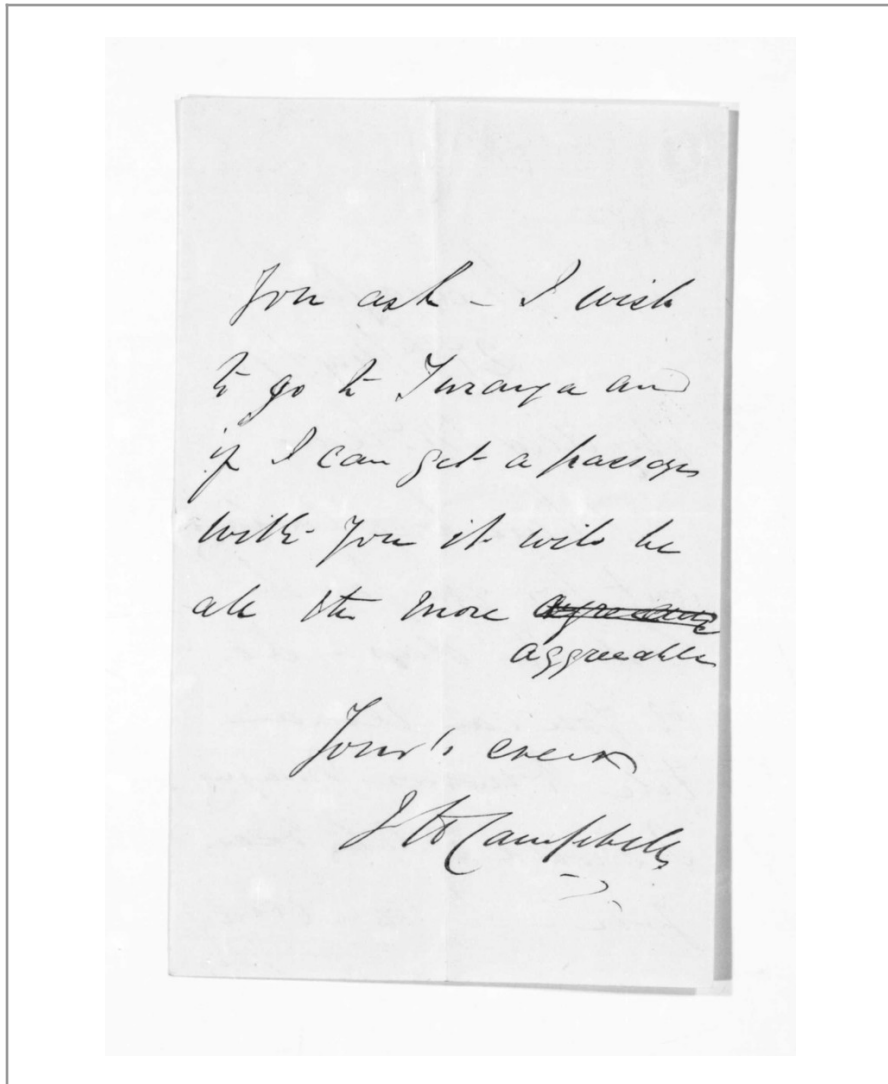 You ask - I wish
to go to Turanga and
if I can get a passage
with you it will be
all the more
aggreeable
Your's ever
Campbell